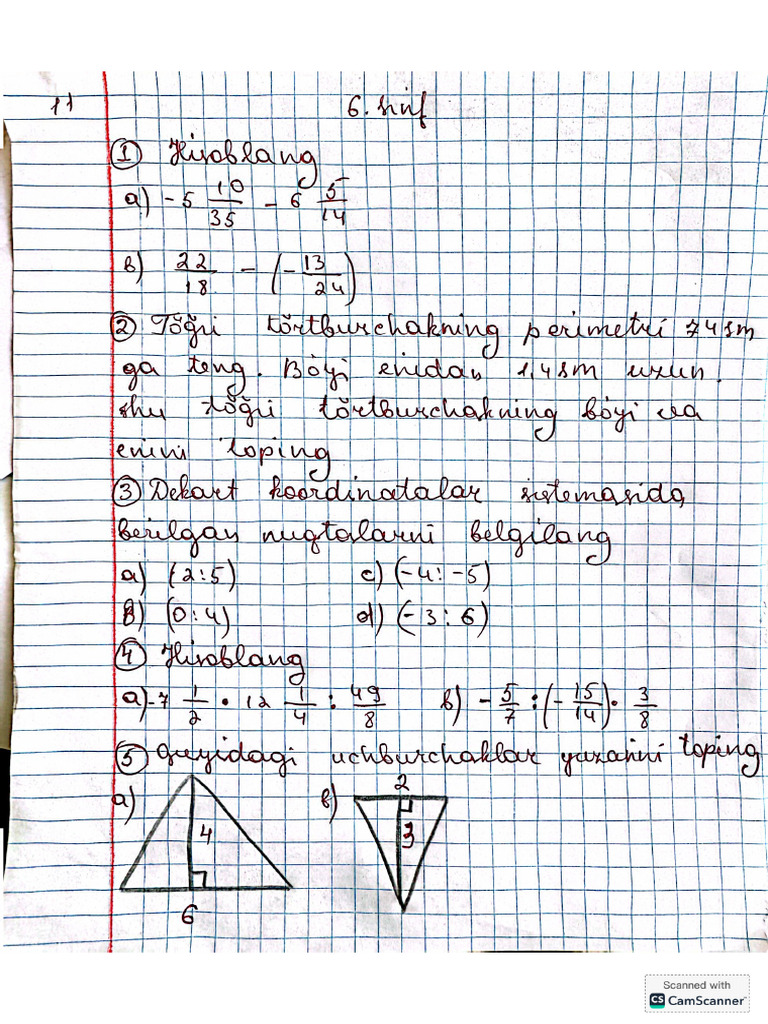 11 6. sinf
① Hisoblang
a) -5 10/35 - 6 5/14
b) 22/18 - (-13/24)
② Tõğri tõrtburchakning perimetri 74sm
ga teng. Bõyi enidan 1,4sm uzun.
shu tõğri tõrtburchakning bõyi va
enini toping
③ Dekart koordinatalar sistemasida
berilgan nuqtalarni belgilang
a) (2:5) c) (-4: -5)
b) (0:4) d) (-3: 6)
④ Hisoblang
a) -7 1/2 · 12 1/4 : 49/8 b) -5/7 : (-15/14) · 3/8
⑤ quyidagi uchburchaklar yuzasini toping
a) b) 2
4 3
6
Scanned with
CS CamScanner